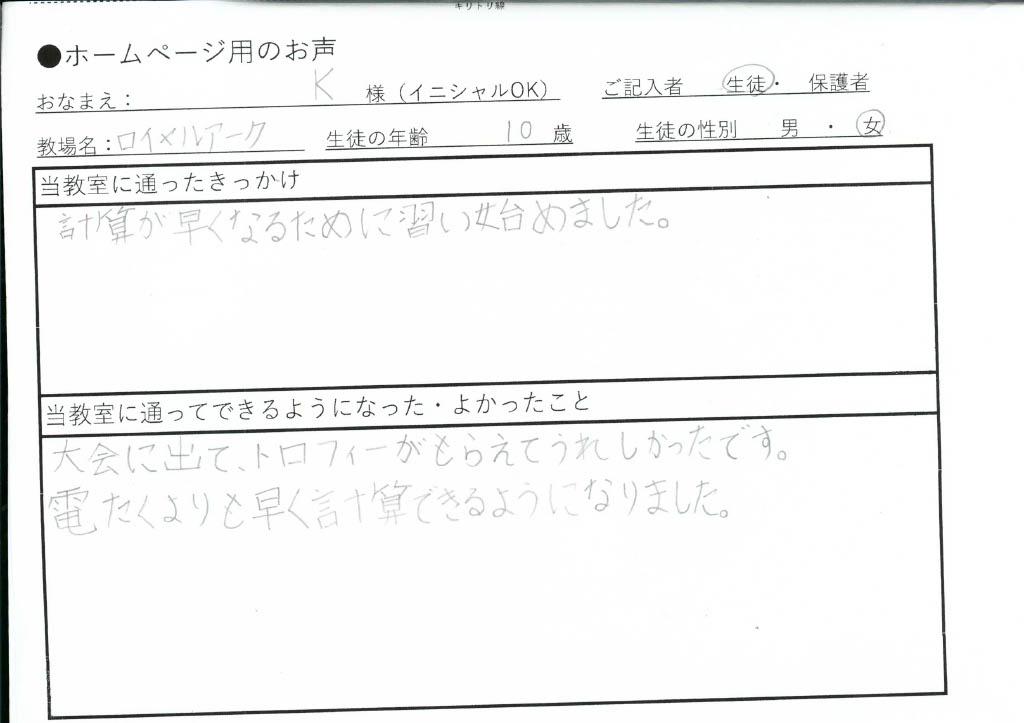 キリトリ線
●ホームページ用のお声
おなまえ： K 様（イニシャルOK） ご記入者 生徒・ 保護者
教場名：ロイメルアーク 生徒の年齢 10 歳 生徒の性別 男 ・ 女
当教室に通ったきっかけ
計算が早くなるために習い始めました。
当教室に通ってできるようになった・よかったこと
大会に出て、トロフィーがもらえてうれしかったです。
電たくよりも早く計算できるようになりました。